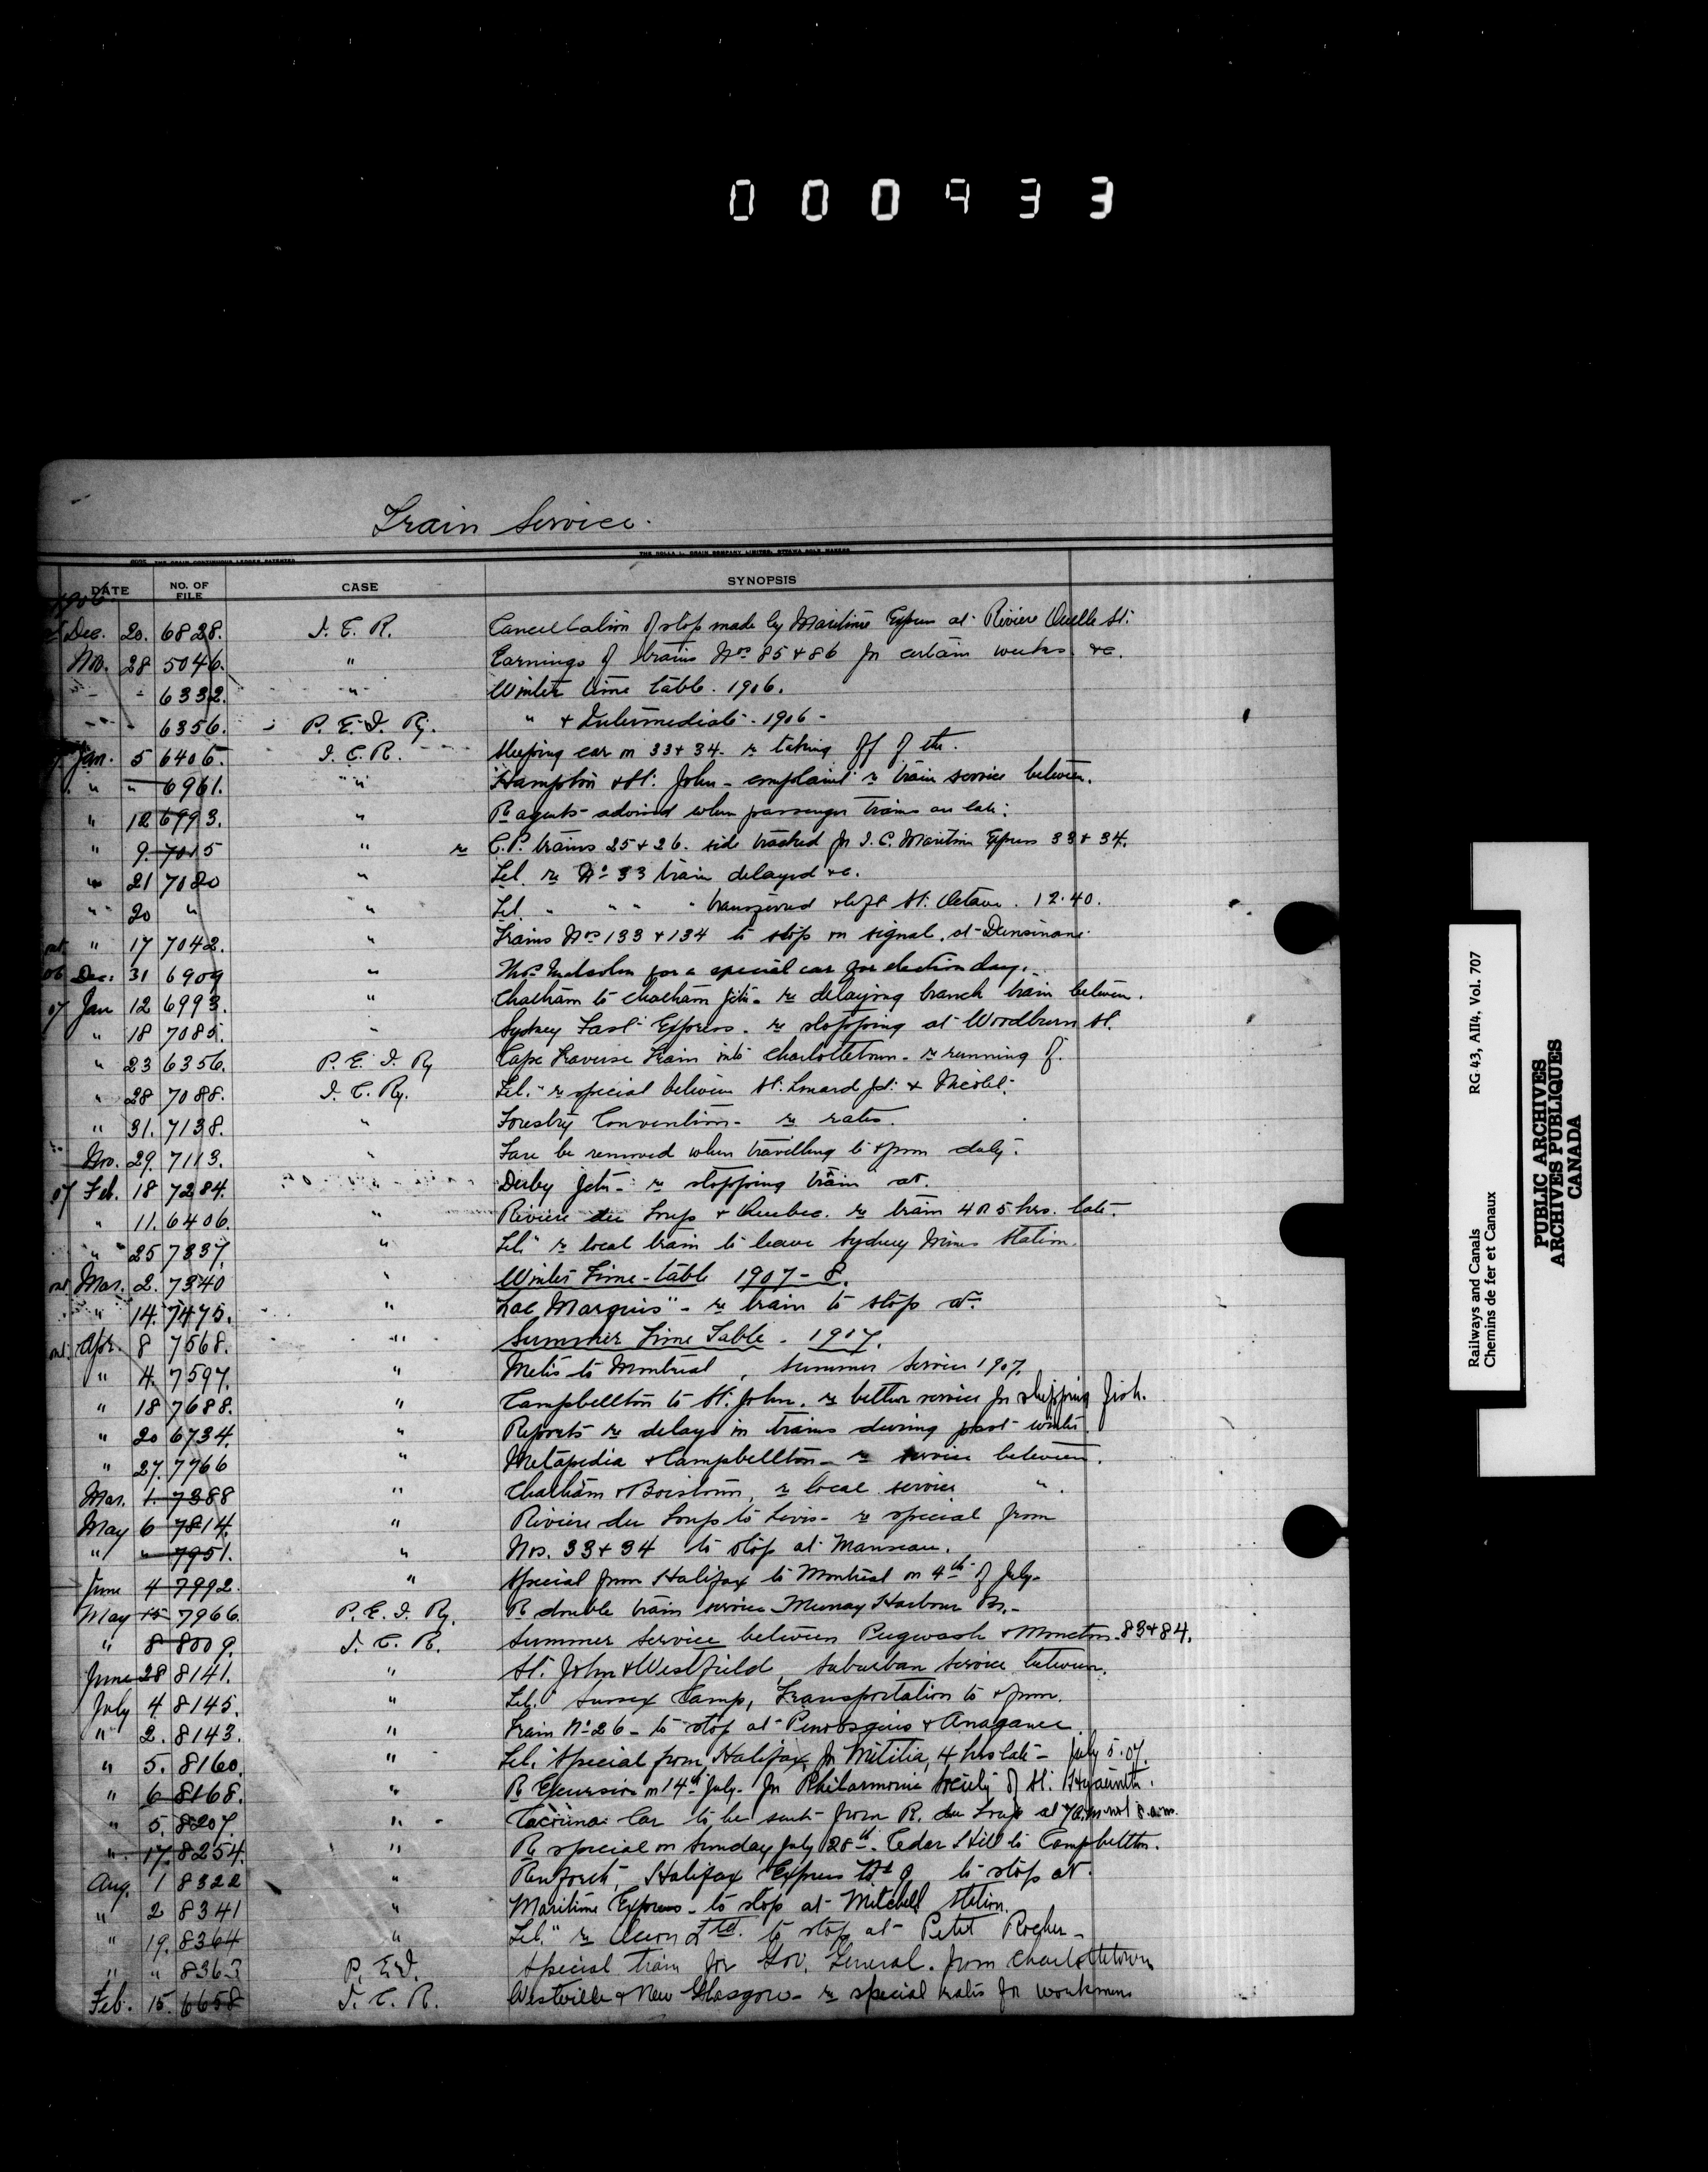 000933
Train Service.
DATE NO. OF FILE CASE SYNOPSIS
1906
Dec. 20. 6828. I. C. R. Cancellation of stop made by Maritime Express at Riviere Ouelle St.
Nov. 28 5046. " Earnings of trains Nos 85 & 86 for certain weeks &c.
" - 6332. " Winter time table. 1906.
" - 6356. P. E. I. Ry. " & Intermediate - 1906 -
Jan. 5 6406. I. C. R. Sleeping car on 33 & 34. re taking off of the.
" " 6961. " Hampton & St. John - complaint re train service between.
" 12 6993. " Re agents advised when passenger trains are late.
" 9. 7015 " re C.P. trains 25 & 26. side tracked for I. C. Maritime Express 33 & 34.
" 21 7080 " Tel. re No 33 train delayed &c.
" 20 " " Tel. " " " " transferred & left St. Octave. 12.40.
" 17 7042. " Trains Nos 133 & 134 to stop on signal. at Dinsmore
06 Dec. 31 6909 " Thos Malcolm for a special car for election day.
07 Jan 12 6993. " Chatham to Chatham Jctn - re delaying branch train between.
" 18 7085. " Sydney Fast Express. re stopping at Woodburn St.
" 23 6356. P. E. I. Ry Cape Traverse Train into Charlottetown - re running of.
" 28 7088. I. C. Ry. Tel. re special between St. Leonard Jct. & Nicolet.
" 31. 7138. " Forestry Convention - re rates.
Nov. 29. 7113. " Fare be removed when travelling to & from duty.
07 Feb. 18 7284. " Derby Jctn - re stopping train at.
" 11. 6406. " Riviere du Loup & Quebec. re train 4 or 5 hrs. late.
" 25 7337. " Tel. re local train to leave Sydney Mines Station.
Mar. 2. 7340 " Winter Time-table 1907-8.
" 14. 7475. " "Lac Marquis" - re train to stop at.
Apr. 8 7568. " Summer Time Table - 1907.
" 4. 7597. " Metis to Montreal, Summer Service 1907.
" 18 7688. " Campbellton to St. John. re better service for shipping fish.
" 20 6734. " Reports re delays in trains during past winter.
" 27. 7766 " Metapedia & Campbellton - re service between.
Mar. 1. 7388 " Chatham & Boistown, re local service ".
May 6 7814. " Riviere du Loup to Levis - re special from
" " 7951. " Nos. 33 & 34 to stop at Manseau.
June 4 7992. " Special from Halifax to Montreal on 4th of July -
May 15 7966. P. E. I. Ry. Re double train service Murray Harbour Br. -
" 8 8009. I. C. R. Summer Service between Pugwash & Moncton. 83 & 84.
June 28 8141. " St. John & Westfield, Suburban Service between.
July 4 8145. " Tel. Sussex Camp, Transportation to & from.
" 2. 8143. " Train No 26 - to stop at Penobsquis & Anagance.
" 5. 8160. " Tel. Special from Halifax for Militia, 4 hrs late - July 5. 07.
" 6 8168. " Re Excursion on 14th July - for Philarmonic Society of St. Hyacinth.
" 5. 8207. " Cacouna Car to be sent from R. du Loup at 7 a.m. not 8 a.m.
" 17. 8254. " Re special on Sunday July 28th. Cedar Hill to Campbellton.
Aug. 1 8322 " Renforth, Halifax Express No 9 to stop at.
" 2 8341 " Maritime Express - to stop at Mitchell Station.
" 19. 8364 " Tel. re Ltd. to stop at Petit Rocher -
" " 8363 P. E. I. Special train for Gov. General. from Charlottetown
Feb. 15. 6658 I. C. R. Westville & New Glasgow - re special rates for workmens
Railways and Canals RG 43, AII4, Vol. 707
Chemins de fer et Canaux
PUBLIC ARCHIVES
ARCHIVES PUBLIQUES
CANADA